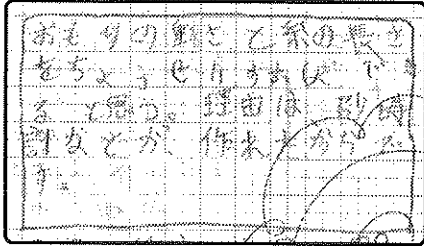 おもりの重さと糸の長さ
をちょうせいすれば、で
きると思う。理由は、砂時
計などが、作れたからで
す。